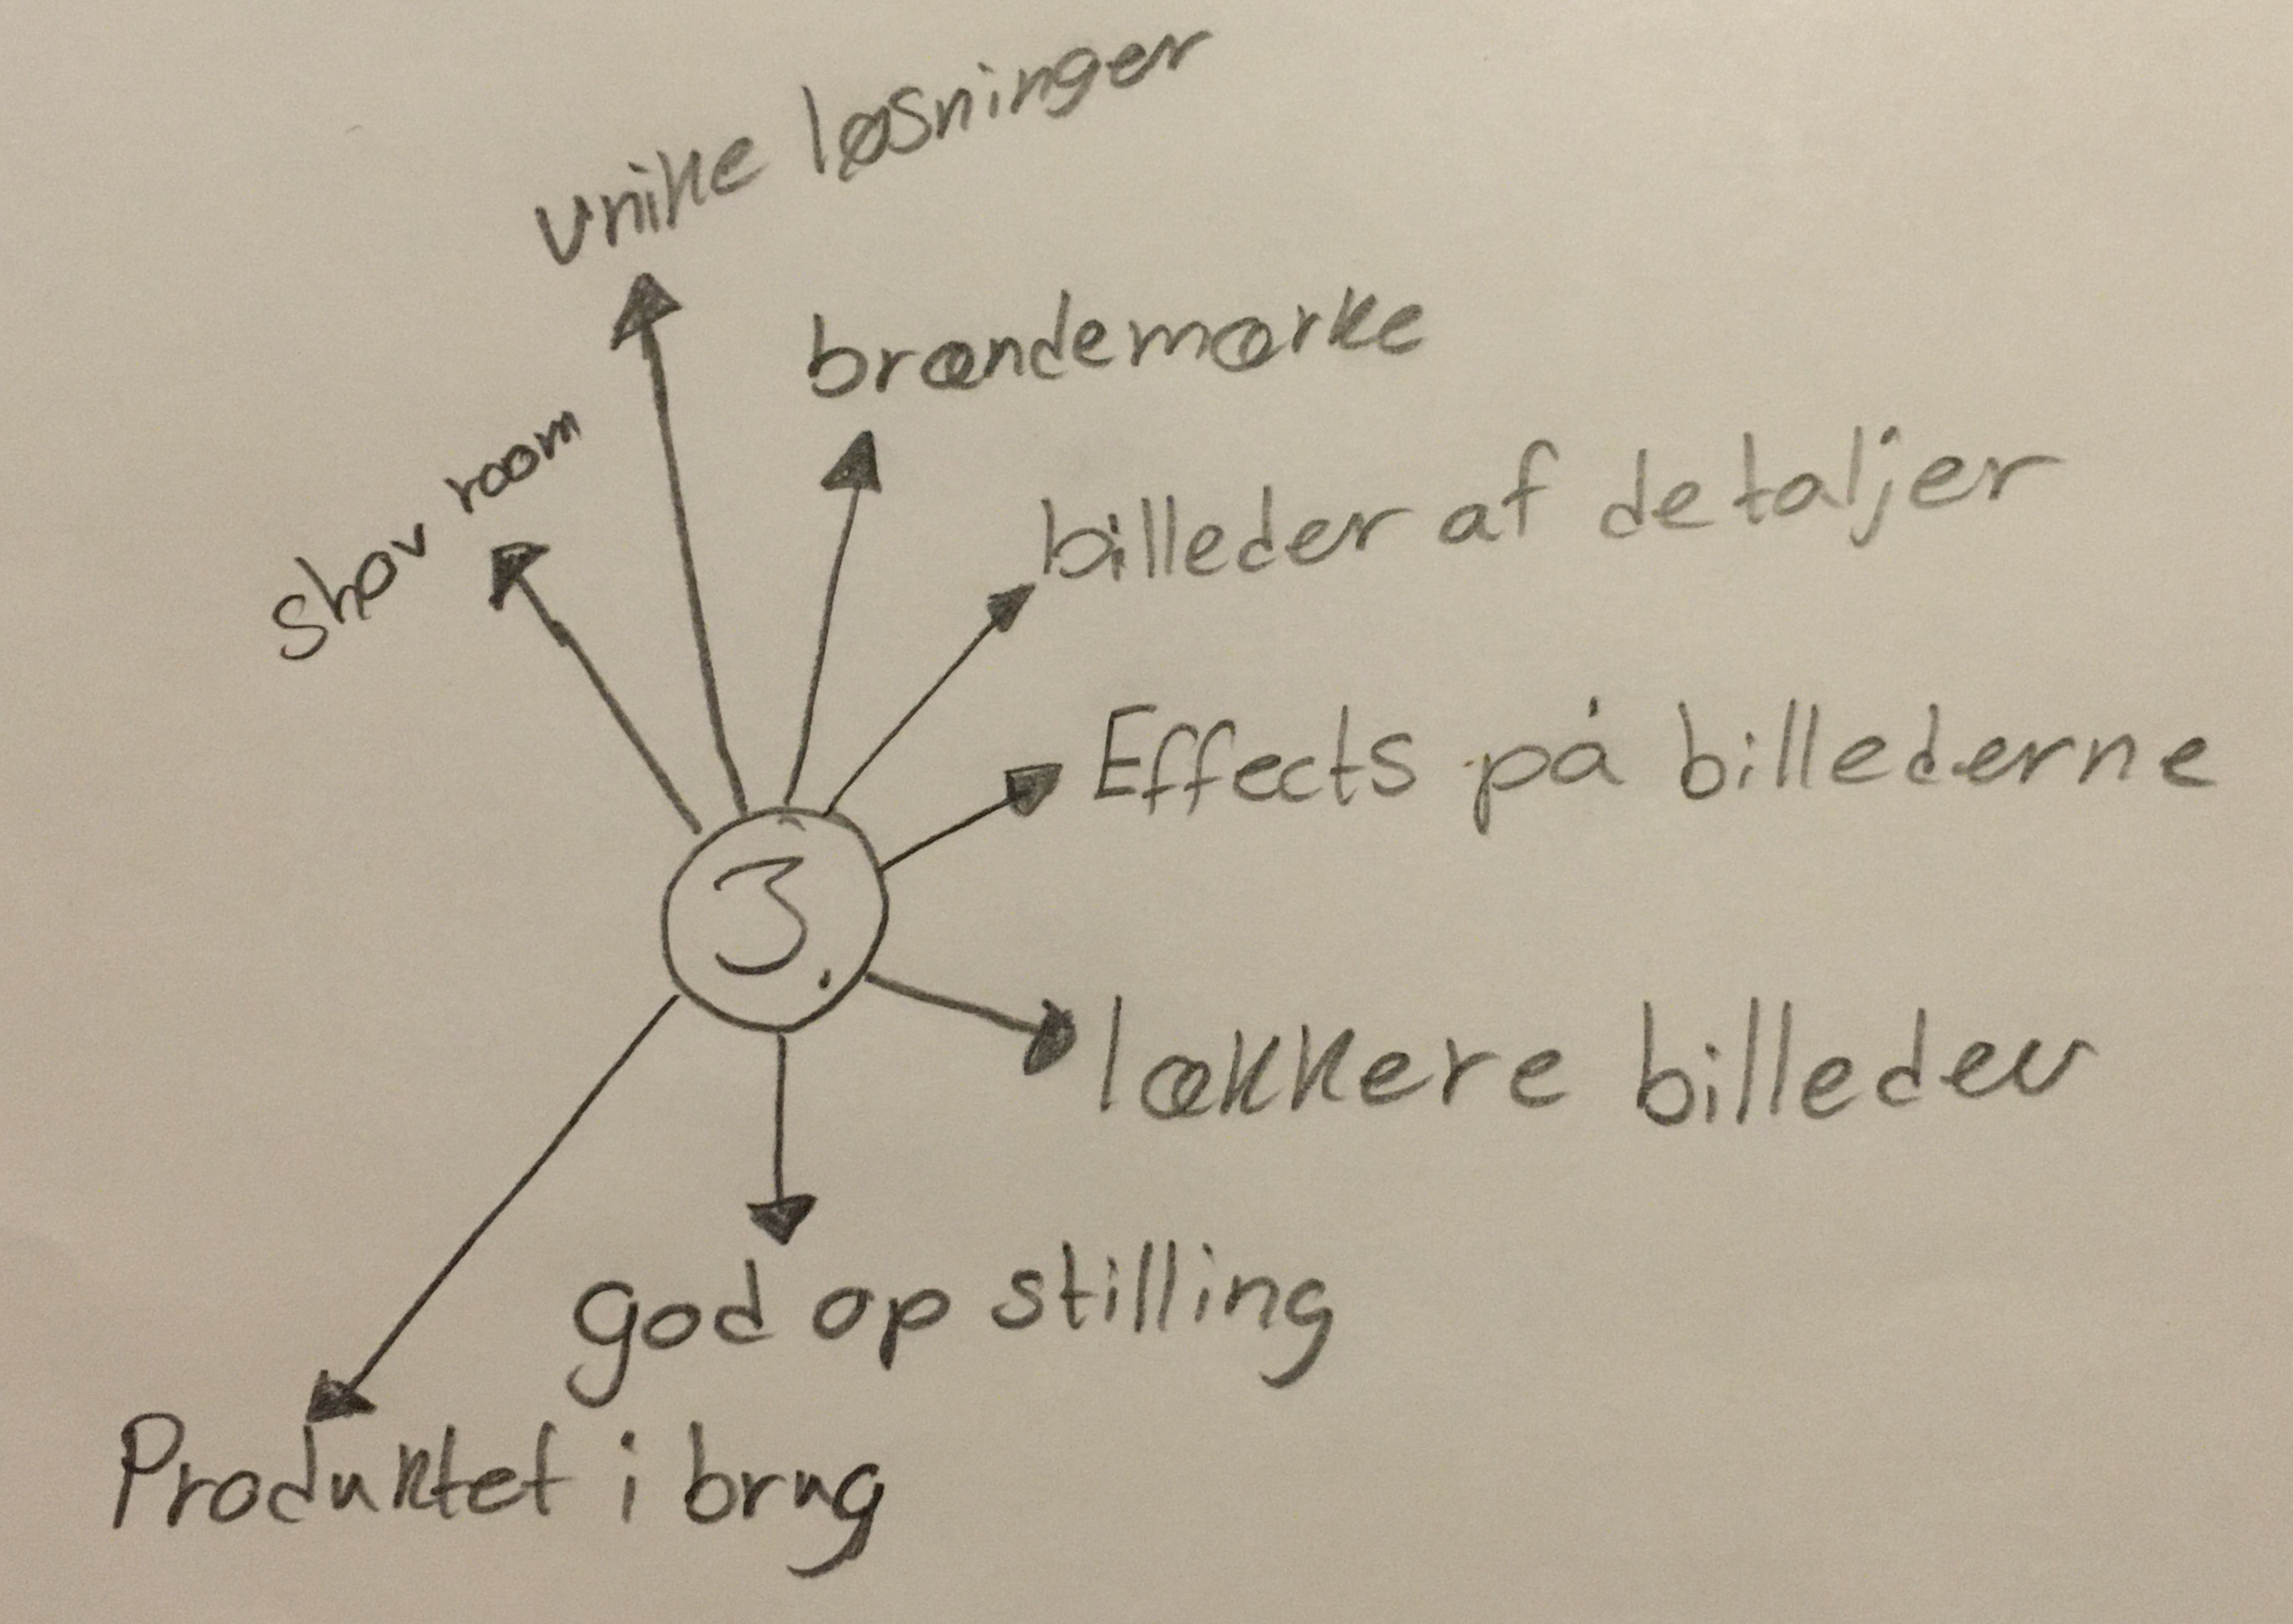 unike løsninger
brændemærke
shov room
billeder af detaljer
Effects på billederne
3.
lækkere billeder
god op stilling
Produktet i brug